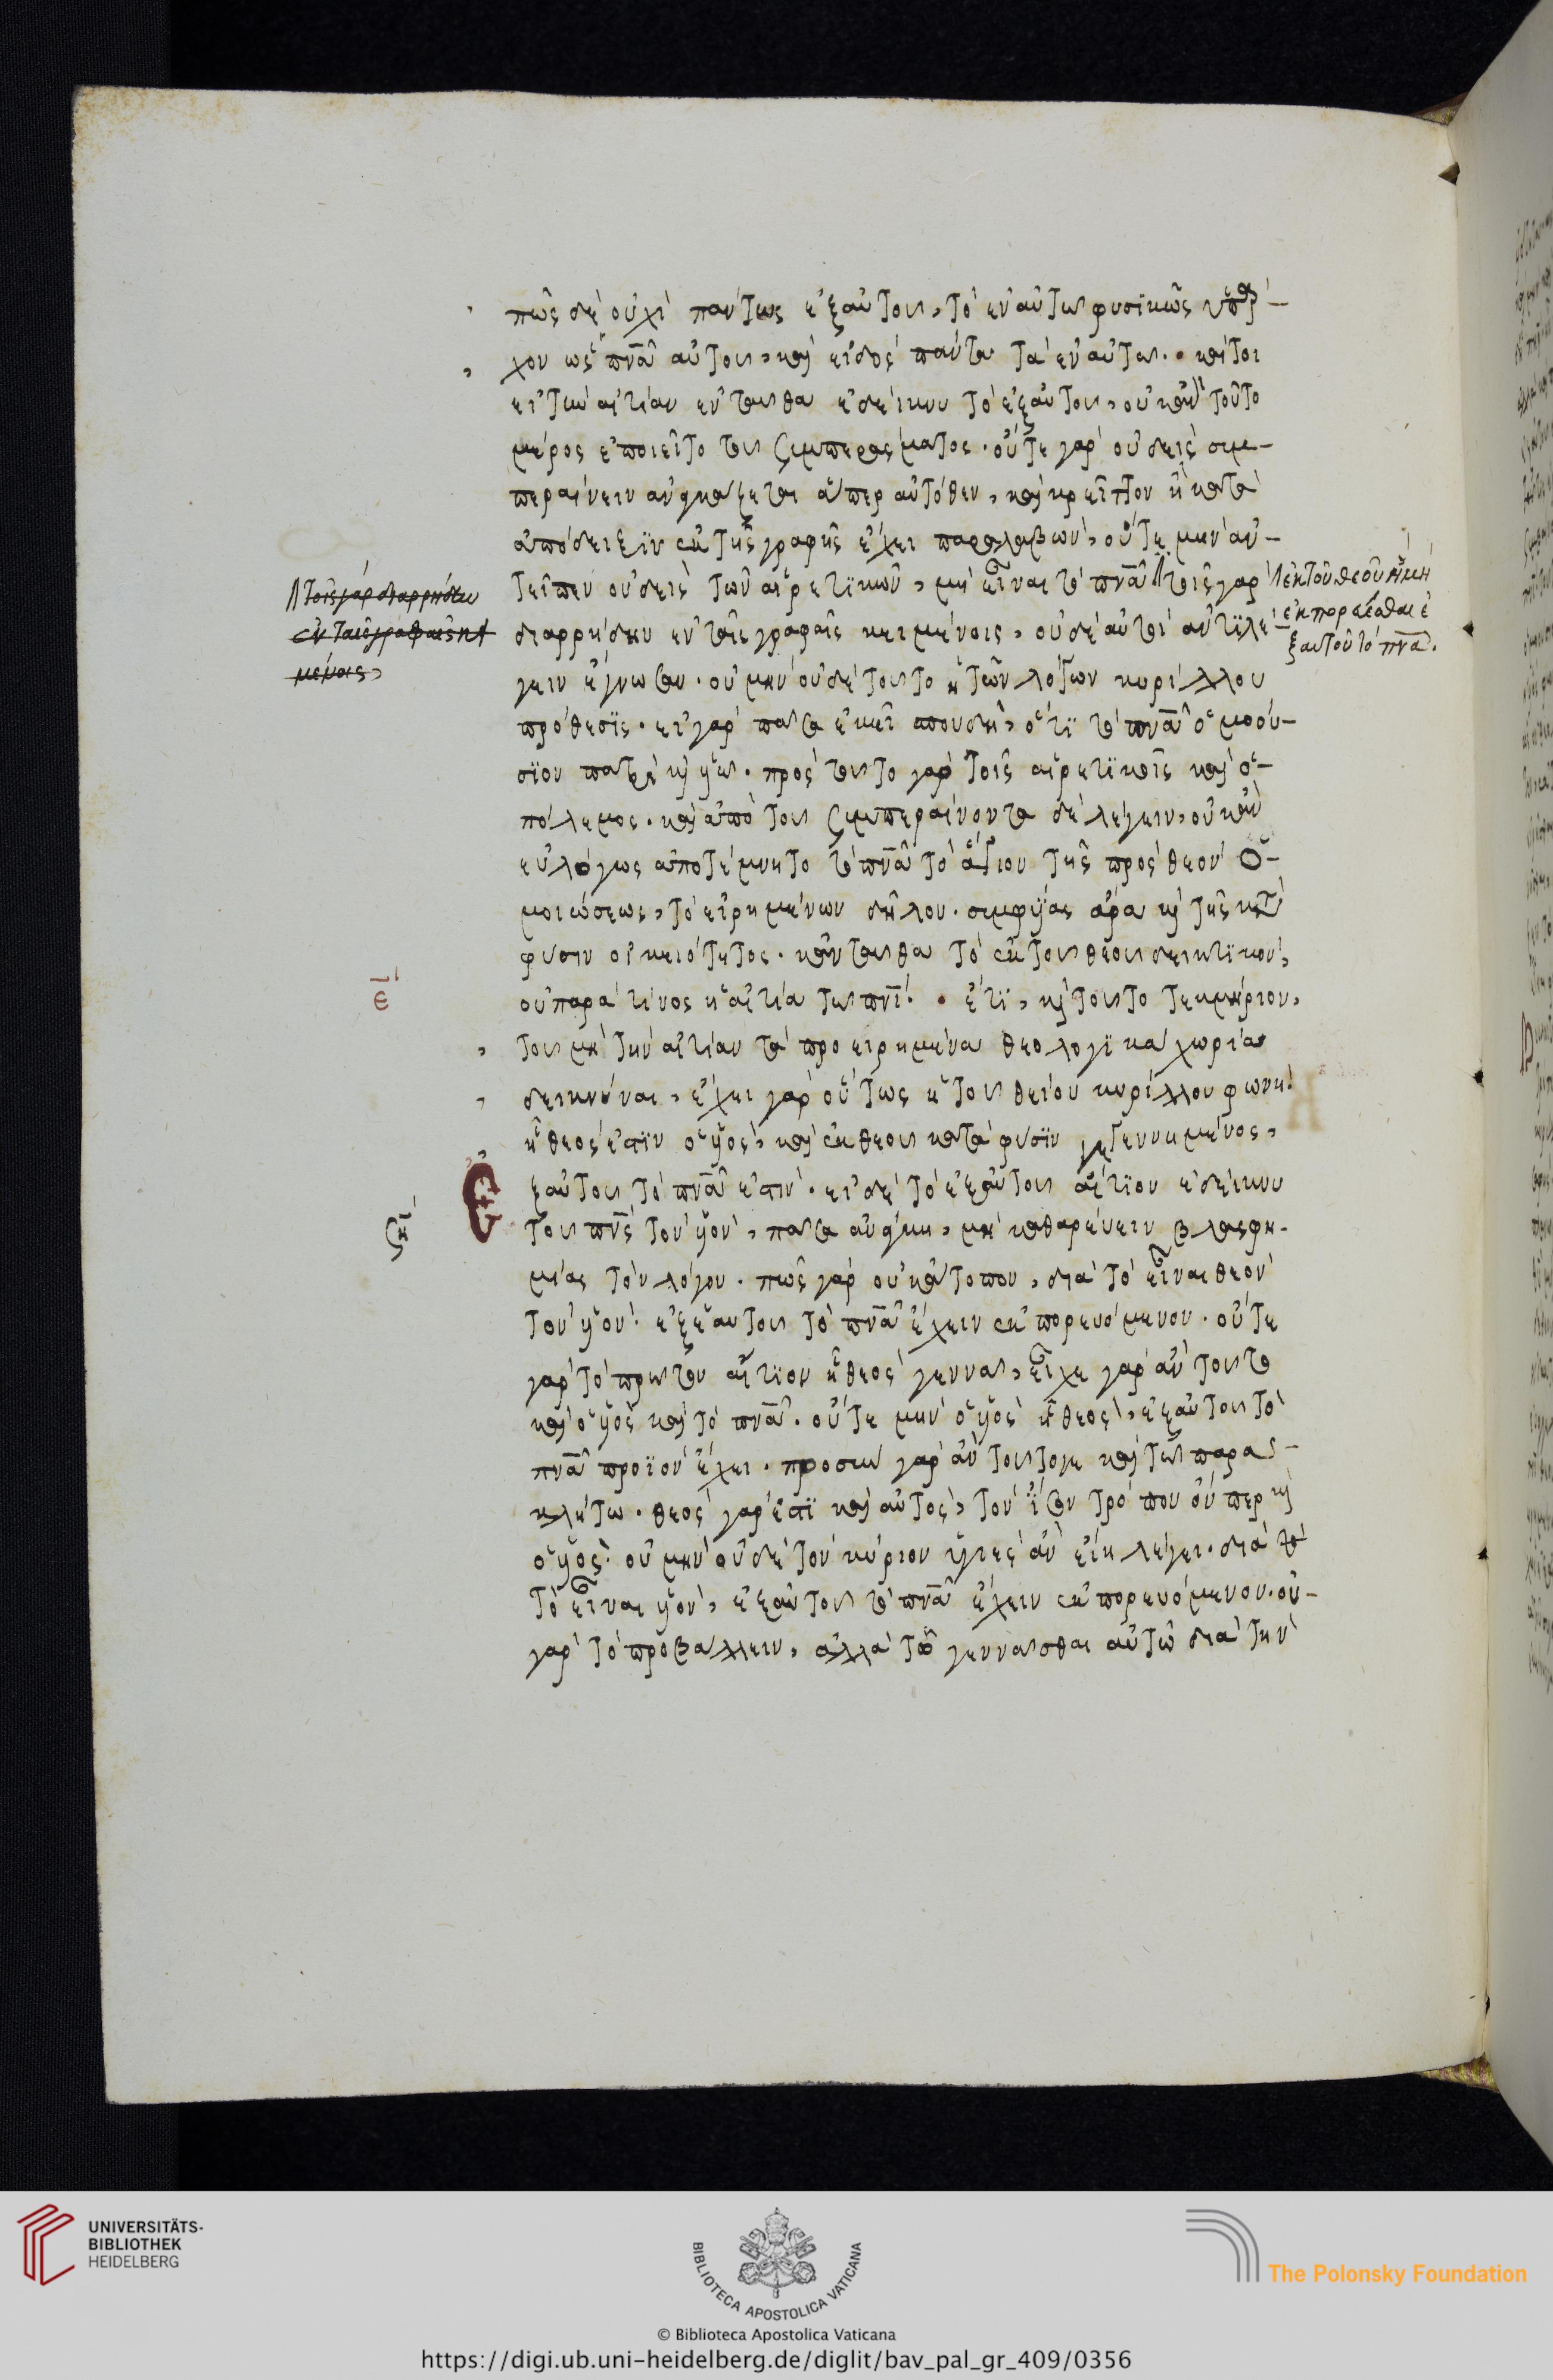 πῶς δὲ οὐχὶ πάντως ἐξ αὐτοῦ, τὸ ἐν αὐτῶ φυσικῶς ὑπάρ-
χον ὡς πν̅α αὐτοῦ, καὶ εἰδὸς πάντα τὰ ἐν αὐτῶ. καίτοι
εἰ τὴν αἰτίαν ἐνταῦθα ἐδείκνυ τὸ ἐξ αὐτοῦ, οὐκ ἂν τοῦτο
μέρος ἐποιεῖτο τοῦ συμπεράσματος. οὔτε γὰρ οὐδεὶς συμ-
περαίνειν ἀναγκάζεται ἅπερ αὐτόθεν, καὶ κρεῖττον ἢ κατὰ
ἀπόδειξιν ἐκ τῆς γραφῆς ἔχει παραλαβών, οὔτε μὴν ἀν-
τεῖπεν οὐδεὶς τῶν αἱρετικῶν, μὴ εἶναι τὸ πν̅α τοῖς γὰρ
ἐκ τοῦ θεοῦ ἢ μὴ
ἐκπορεύεσθαι ἐ
ξ αυτοῦ τὸ πν̅α.
τοῖς γὰρ διαρρήδην
ἐν ταῖς γραφαῖς κει
μένοις,
διαρρήδην ἐν ταῖς γραφαῖς κειμένοις, οὐδὲ αὐτοὶ ἀντιλέ-
γειν ἔγνωσαν. οὐ μὴν οὐδὲ τοῦτο ἡ τῶν λόγων κυρίλλου
πρόθεσις. εἰ γὰρ πᾶσα ἐκεῖ σπουδή, ὅτι τὸ πν̅α ὁμοού-
σιον πατρὶ καὶ υἱῶ. πρὸς τοῦτο γὰρ τοῖς αἱρετικοῖς καὶ ὁ
πόλεμος. καὶ ἀπὸ τοῦ συμπεραίνοντα δὲ λέγειν, οὐκ ἂν
εὐλόγως ἀποτέμνητο τὸ πν̅α τὸ ἅγιον τῆς πρὸς θεὸν ὁ-
μοιώσεως, τὸ εἰρημένων δῆλον. συμφυΐας ἄρα καὶ τῆς κατὰ
φύσιν οἰκειότητος. κἀνταῦθα τὸ ἐκ τοῦ θεοῦ δεικτικόν,
ε̅
οὐ παρὰ τίνος ἡ αἰτία τῶ πν̅ι. ἔτι, καὶ τοῦτο τεκμήριον,
τοῦ μὴ τὴν αἰτίαν τὰ προειρημένα θεολογικὰ χωρία
δεικνύναι, ἔχει γὰρ οὕτως ἡ τοῦ θείου κυρίλλου φωνή.
ᾗ θεός ἐστιν ὁ υἱὸς, καὶ ἐκ θεοῦ κατὰ φύσιν γεγεννημένος,
ξ αὐτοῦ τὸ πν̅α ἐστιν. εἰ δὲ τὸ ἐξ αὐτοῦ αἴτιον ἐδείκνυ
Ἐ
τοῦ πν̅ς τὸν υἱὸν, πᾶσα ἀνάγκη, μὴ καθαρεύειν βλασφη-
μίας τὸν λόγον. πῶς γὰρ οὐκ ἄτοπον, διὰ τὸ εἶναι θεὸν
τὸν υἱὸν. ἐξ ἑαυτοῦ τὸ πν̅α ἔχειν ἐκπορευόμενον. οὔτε
γὰρ τὸ πρῶτον αἴτιον ᾗ θεὸς γεννᾶ, εἶχε γὰρ ἂν τοῦτο
καὶ ὁ υἱὸς καὶ τὸ πν̅α. οὔτε μὴν ὁ υἱὸς ᾗ θεὸς, ἐξ αὐτοῦ τὸ
πν̅α προϊὸν ἔχει. προσῆν γὰρ ἂν τοῦτό γε καὶ τῶ παρα-
κλήτω. θεὸς γάρ ἐστι καὶ αὐτὸς, τὸν ἴσον τρόπον ὅνπερ καὶ
ὁ υἱὸς. οὐ μὴν οὐδὲ τὸν κύριον υἱὸς ἂν εἴη λέγει. διὰ τὸ
τὸ εἶναι υἱὸν, ἐξ αὐτοῦ τὸ πν̅α ἔχειν ἐκπορευόμενον. οὐ
γὰρ τὸ προβάλλειν, ἀλλὰ τὸ γεννᾶσθαι αὐτῶ διὰ τὴν
UNIVERSITÄTS-
BIBLIOTHEK
HEIDELBERG
BIBLIOTECA APOSTOLICA VATICANA
The Polonsky Foundation
© Biblioteca Apostolica Vaticana
https://digi.ub.uni-heidelberg.de/diglit/bav_pal_gr_409/0356